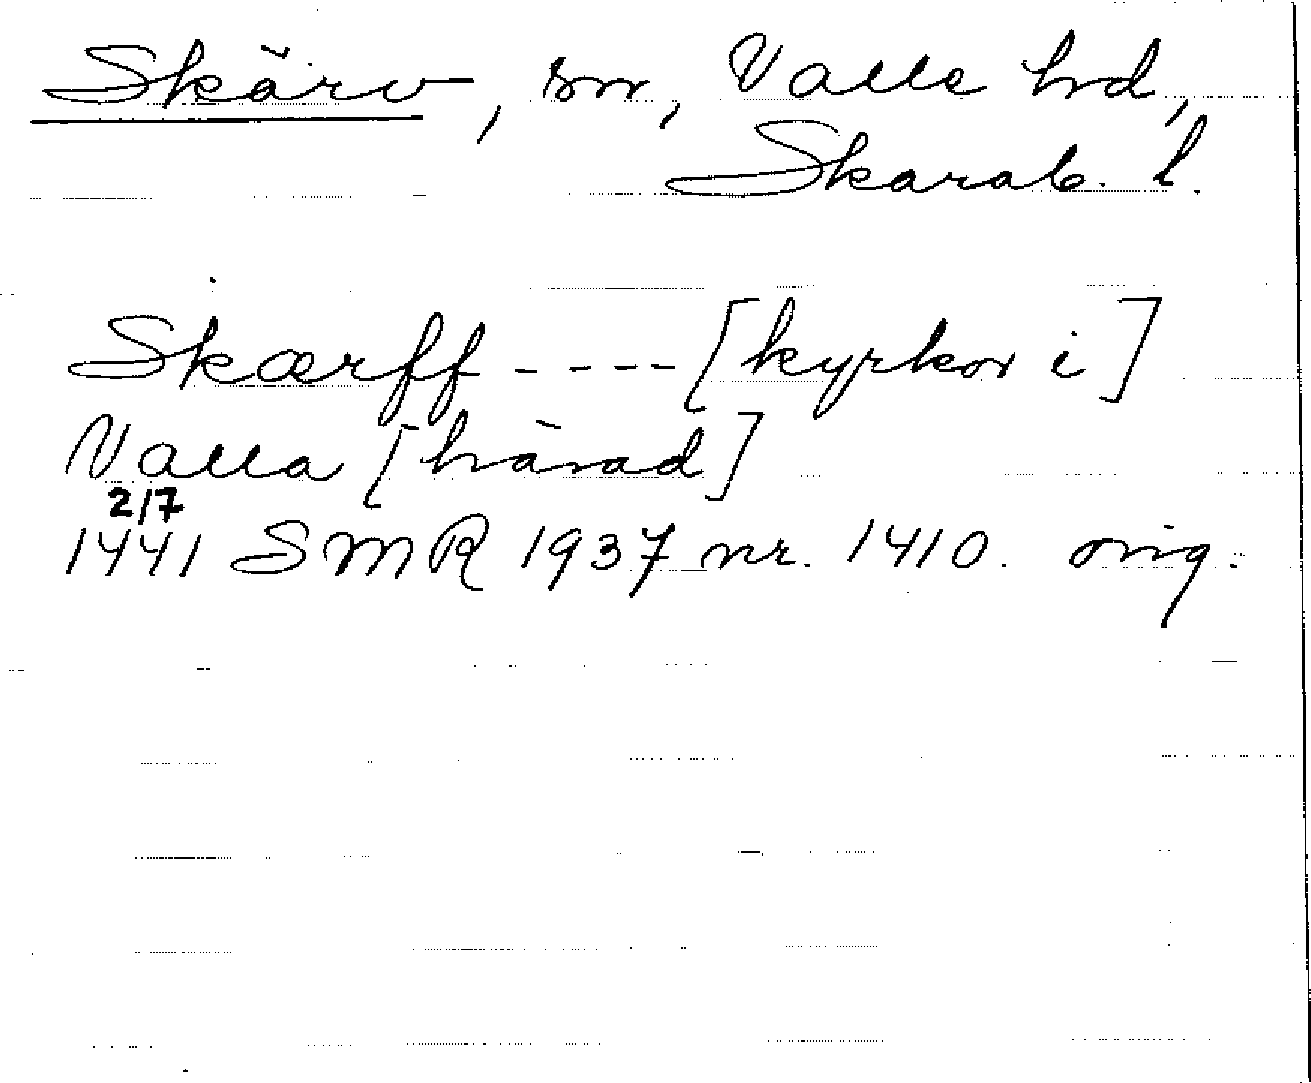 Skärv, sn, Valle hd,
Skarab. l.
Skærff ---- [kyrkor i]
Valla [härad]
2/7
1441 SMR 1937 nr. 1410. orig.